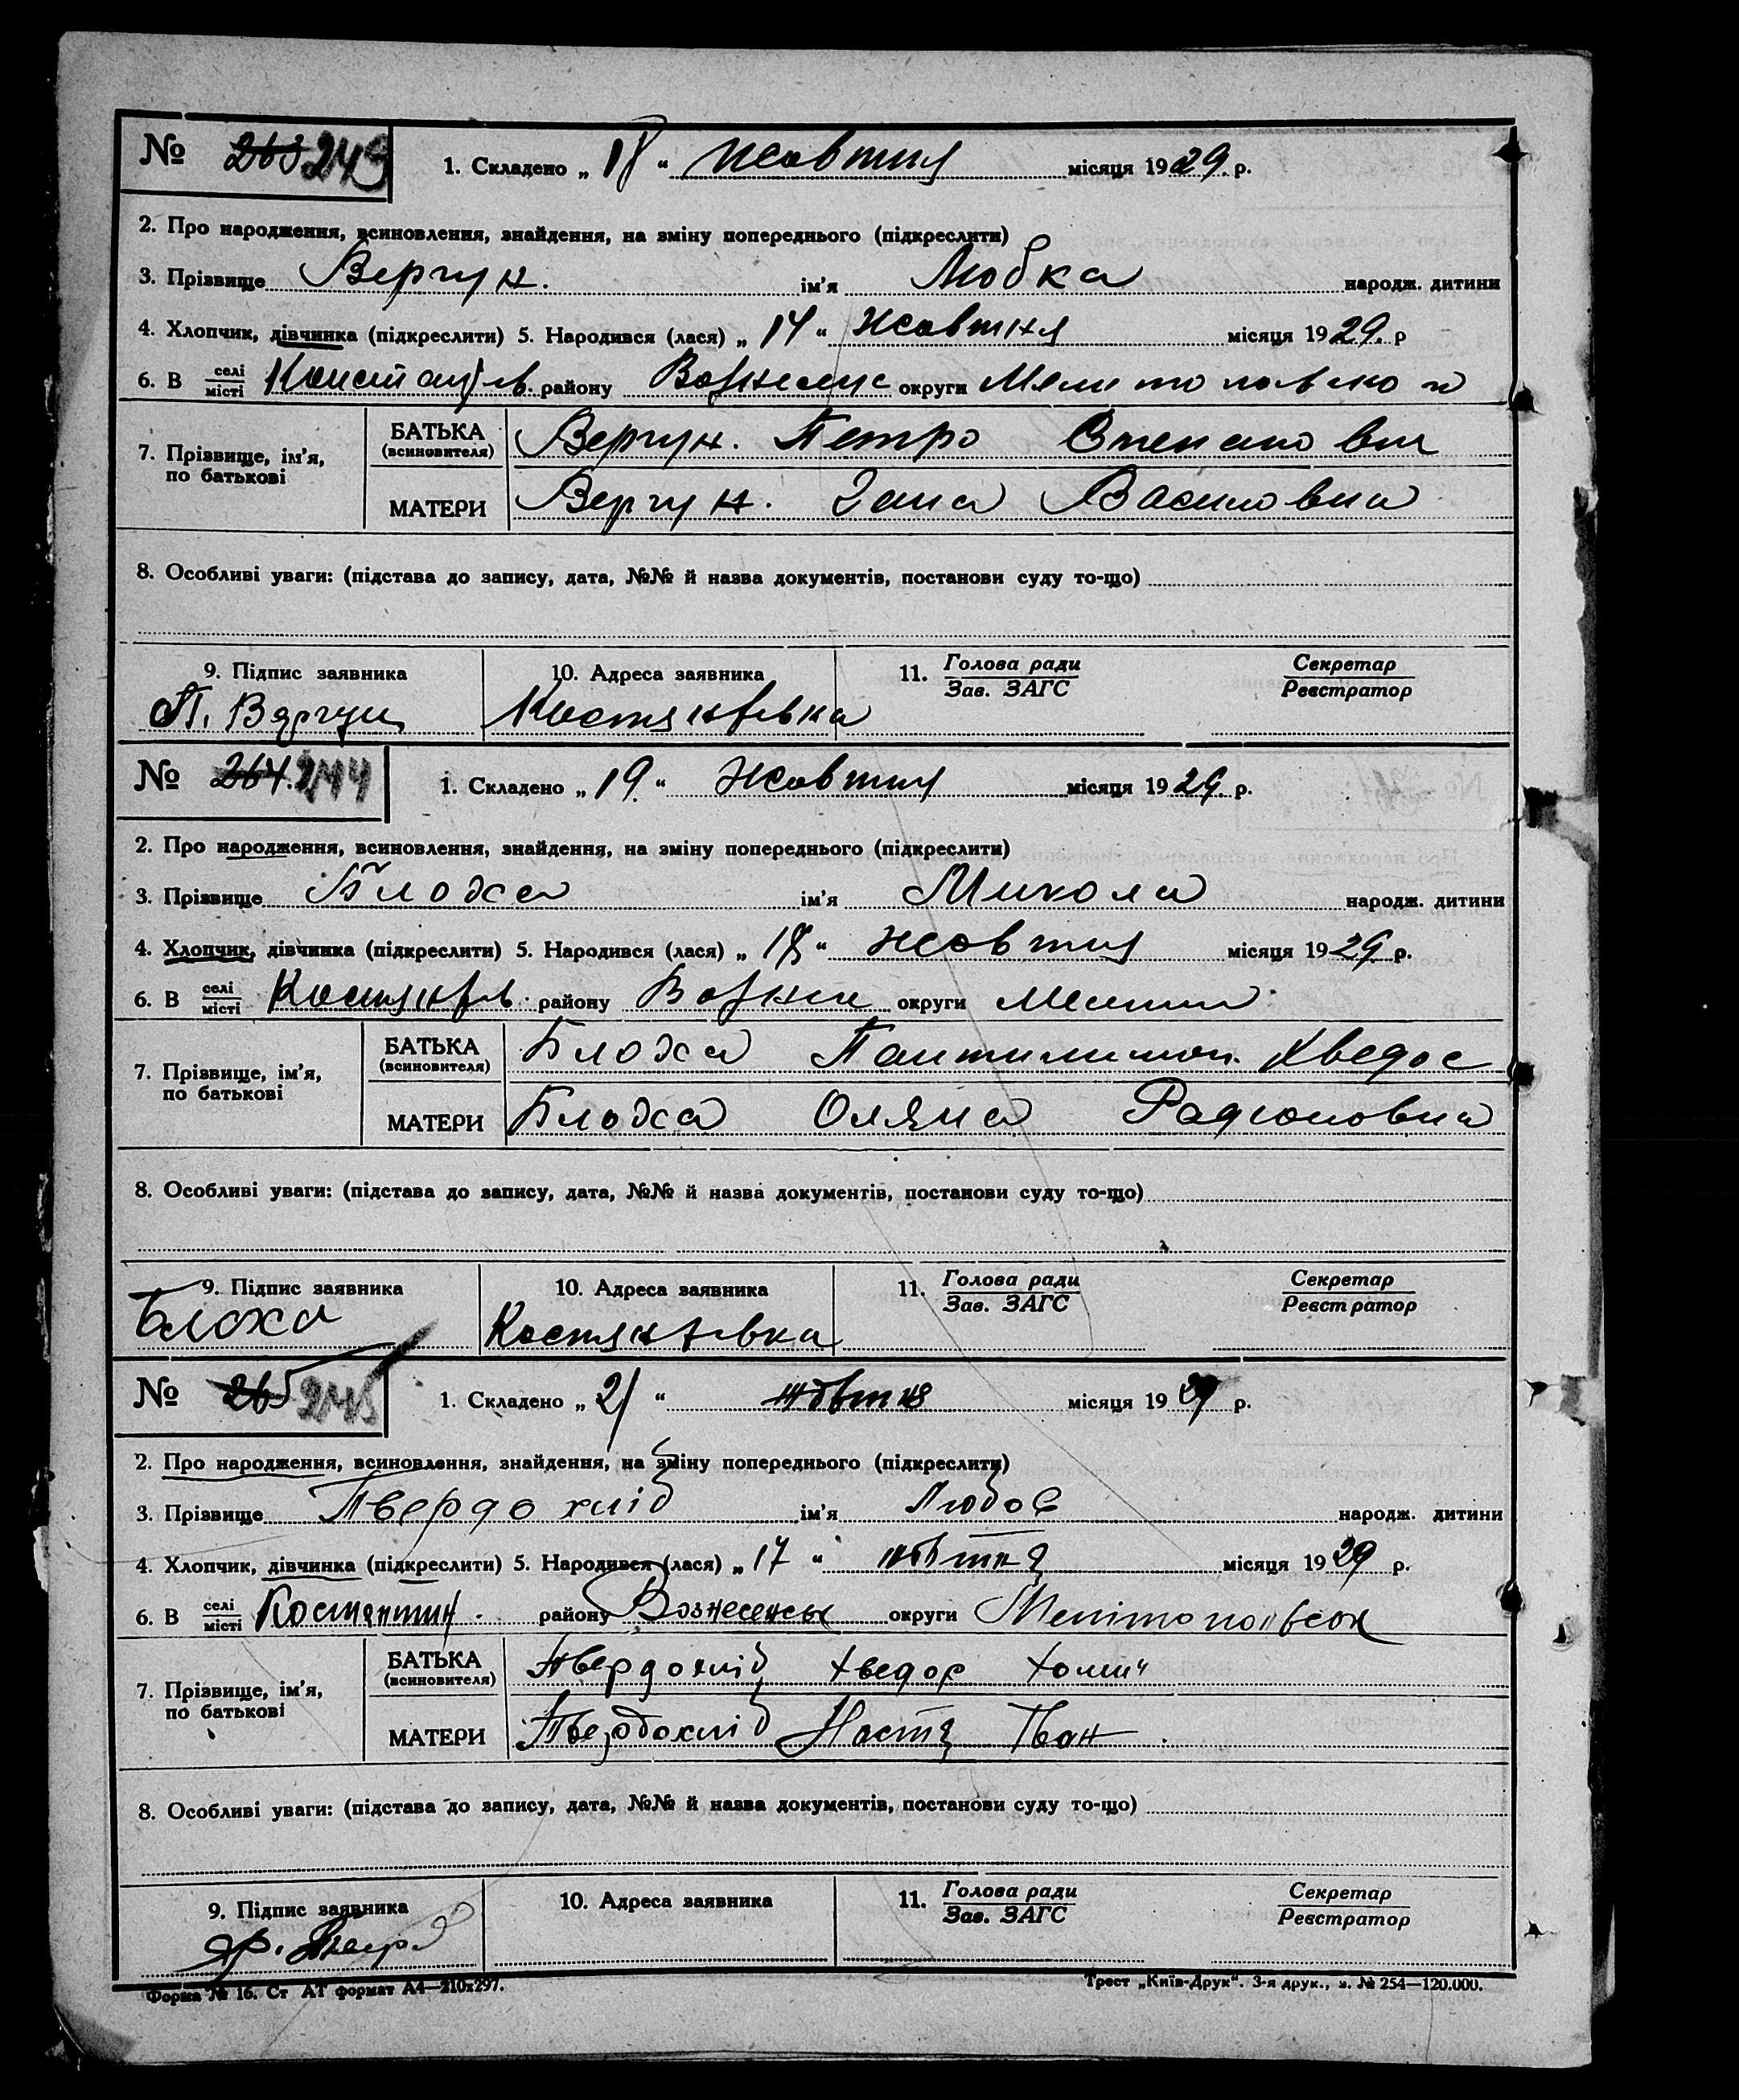 № 263 243 1. Складено „ 18 “ жовтня місяця 1929. р.
2. Про народження, всиновлення, знайдення, на зміну попереднього (підкреслити)
3. Прізвище Вергун. ім'я Любка народж. дитини
4. Хлопчик, дівчинка (підкреслити) 5. Народився (лася) „ 14 “ жовтня місяця 1929. р
6. В селі місті району округи
7. Прізвище, ім'я, по батькові БАТЬКА (всиновителя) Вергун. Петро Степанович
МАТЕРИ Вергун. Гана Василовна
8. Особливі уваги: (підстава до запису, дата, №№ й назва документів, постанови суду то-що)
9. Підпис заявника 10. Адреса заявника 11. Голова ради Зав. ЗАГС Секретар Реєстратор
П. Вяргун Костянтівка
№ 264. 244 1. Складено „ 19. “ жовтня місяця 1929. р.
2. Про народження, всиновлення, знайдення, на зміну попереднього (підкреслити)
3. Прізвище Блоха ім'я Микола народж. дитини
4. Хлопчик, дівчинка (підкреслити) 5. Народився (лася) „ 18 “ жовтня місяця 1929. р.
6. В селі місті району округи
7. Прізвище, ім'я, по батькові БАТЬКА (всиновителя) Блоха Хведос
МАТЕРИ Блоха Оляна Радионовна
8. Особливі уваги: (підстава до запису, дата, №№ й назва документів, постанови суду то-що)
9. Підпис заявника 10. Адреса заявника 11. Голова ради Зав. ЗАГС Секретар Реєстратор
Блоха Костянтівка
№ 265 245 1. Складено „ 21 “ жовтня місяця 1929 р.
2. Про народження, всиновлення, знайдення, на зміну попереднього (підкреслити)
3. Прізвище Твердохліб ім'я Любов народж. дитини
4. Хлопчик, дівчинка (підкреслити) 5. Народився (лася) „ 17 “ жовтня місяця 1929 р.
6. В селі місті Костянтин. району Вознесенськ округи Мелітопольсок
7. Прізвище, ім'я, по батькові БАТЬКА (всиновителя) Твердохліб Хведор Хомич
МАТЕРИ Твердохліб Настя Іван
8. Особливі уваги: (підстава до запису, дата, №№ й назва документів, постанови суду то-що)
9. Підпис заявника 10. Адреса заявника 11. Голова ради Зав. ЗАГС Секретар Реєстратор
Форма № 16. Ст АТ формат А4—210х297. Трест „Київ-Друк“. 3-я друк., з. № 254—120.000.